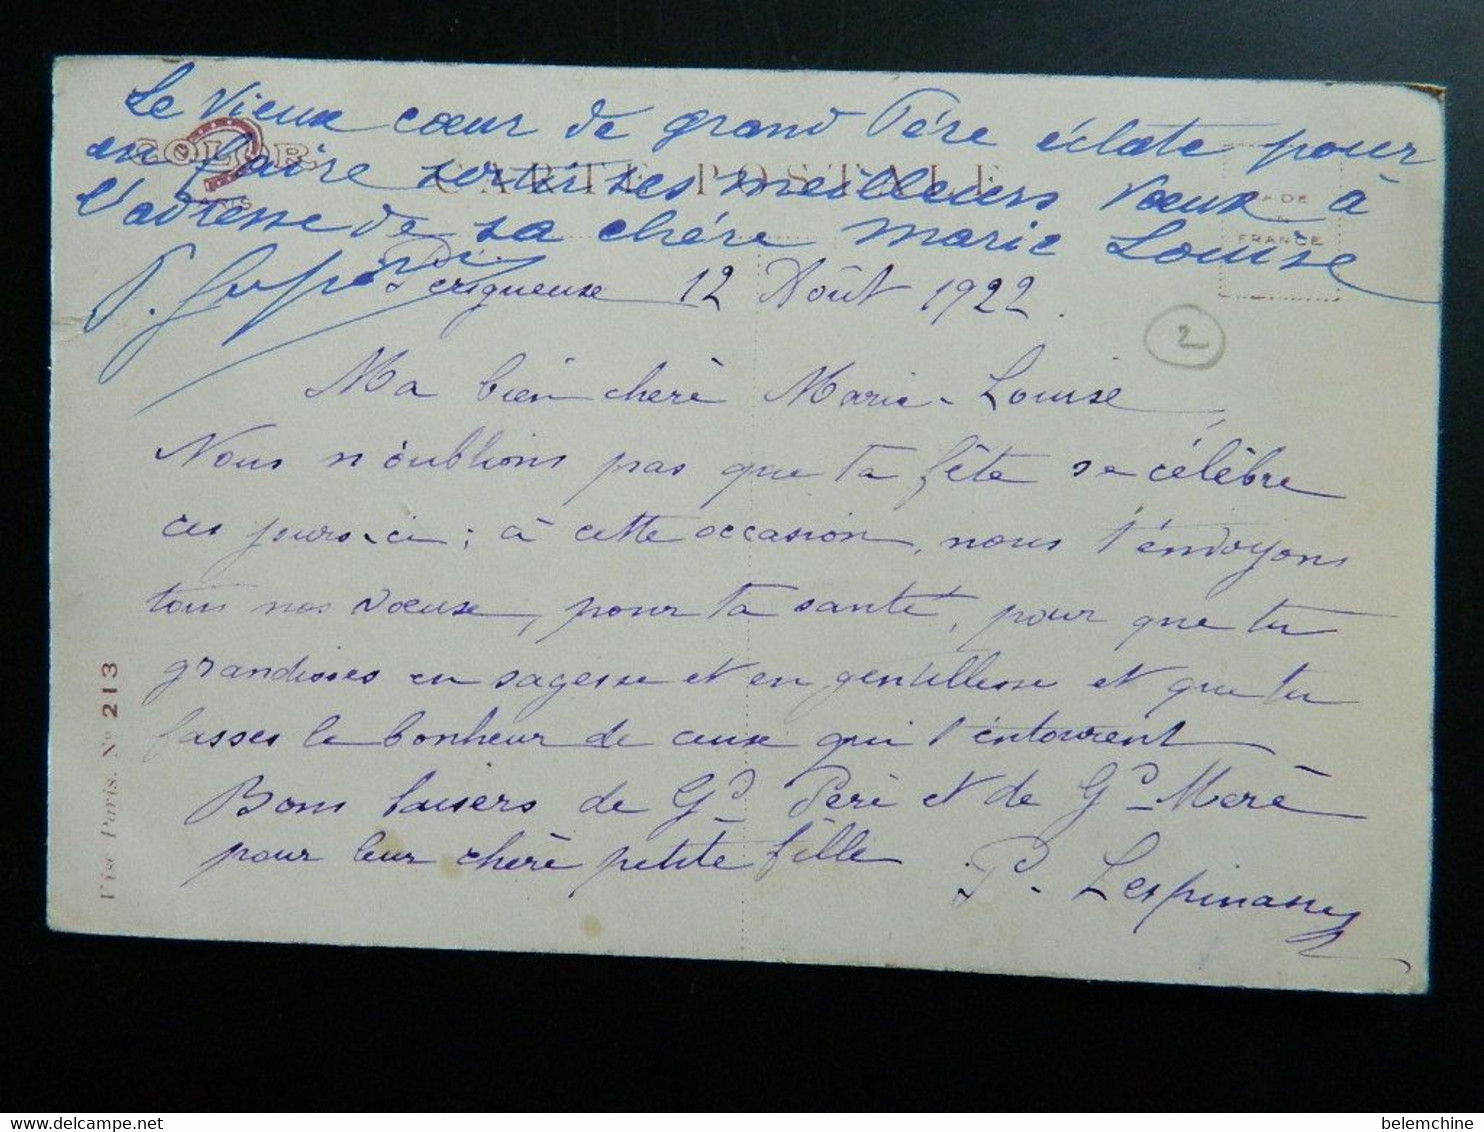 Le vieux cœur de grand Père éclate pour
en faire sortir ses meilleurs vœux à
l'adresse de sa chère Marie Louise
COLOR
PARIS
CARTE POSTALE
DE
FRANCE
Périgueux 12 Août 1922.
2
Ma bien chère Marie-Louise,
Nous n'oublions pas que ta fête se célèbre
ces jours-ci ; à cette occasion, nous t'envoyons
tous nos vœux, pour ta santé, pour que tu
grandisses en sagesse et en gentillesse et que tu
fasses le bonheur de ceux qui t'entourent
Bons baisers de Gd Père et de Gd Mère
pour leur chère petite fille
P. Lespinasse
Visé Paris. No 213
belemchine